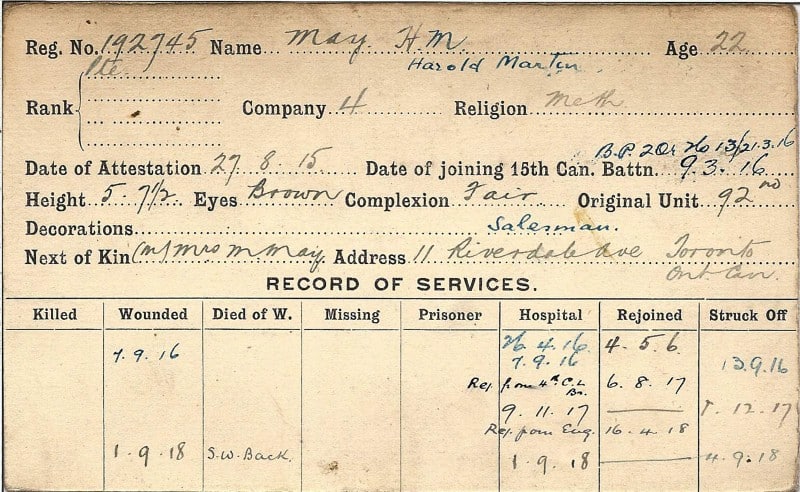 Reg. No. 192745 Name May. H.M. Age 22
Harold Martin
Pte
Rank Company 4 Religion Meth
B.P. 2 Or 26 13/21.3.16
Date of Attestation 27 8. 15 Date of joining 15th Can. Battn. 9.3.16
Height 5. 7 1/2 Eyes Brown Complexion Fair Original Unit 92nd
Decorations Salesman.
Next of Kin (M) Mrs M May. Address 11 Riverdale Ave Toronto
Ont Can.
RECORD OF SERVICES.
Killed Wounded Died of W. Missing Prisoner Hospital Rejoined Struck Off
26.4.16 4.5.6.
7.9.16 7.9.16 13.9.16
Rej. from 4th C.L. 6.8.17
Bn.
9.11.17 12.17
Rej. from Eng. 16.4.18
1.9.18 S.W. Back. 1.9.18 4.9.18